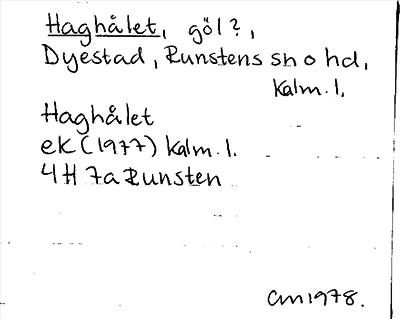 Haghålet, göl?,
Dyestad, Runstens sn o hd,
Kalm. l.
Haghålet
ek (1977) Kalm. l.
4H 7a Runsten
CM 1978.